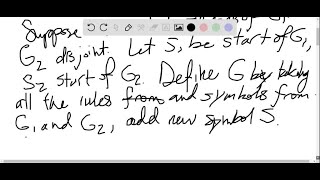 Suppose of G₁,
G₂ disjoint. Let S₁ be start of G₁,
S₂ start of G₂. Define G by taking
all the rules from and symbols from
G₁ and G₂, add new symbol S.